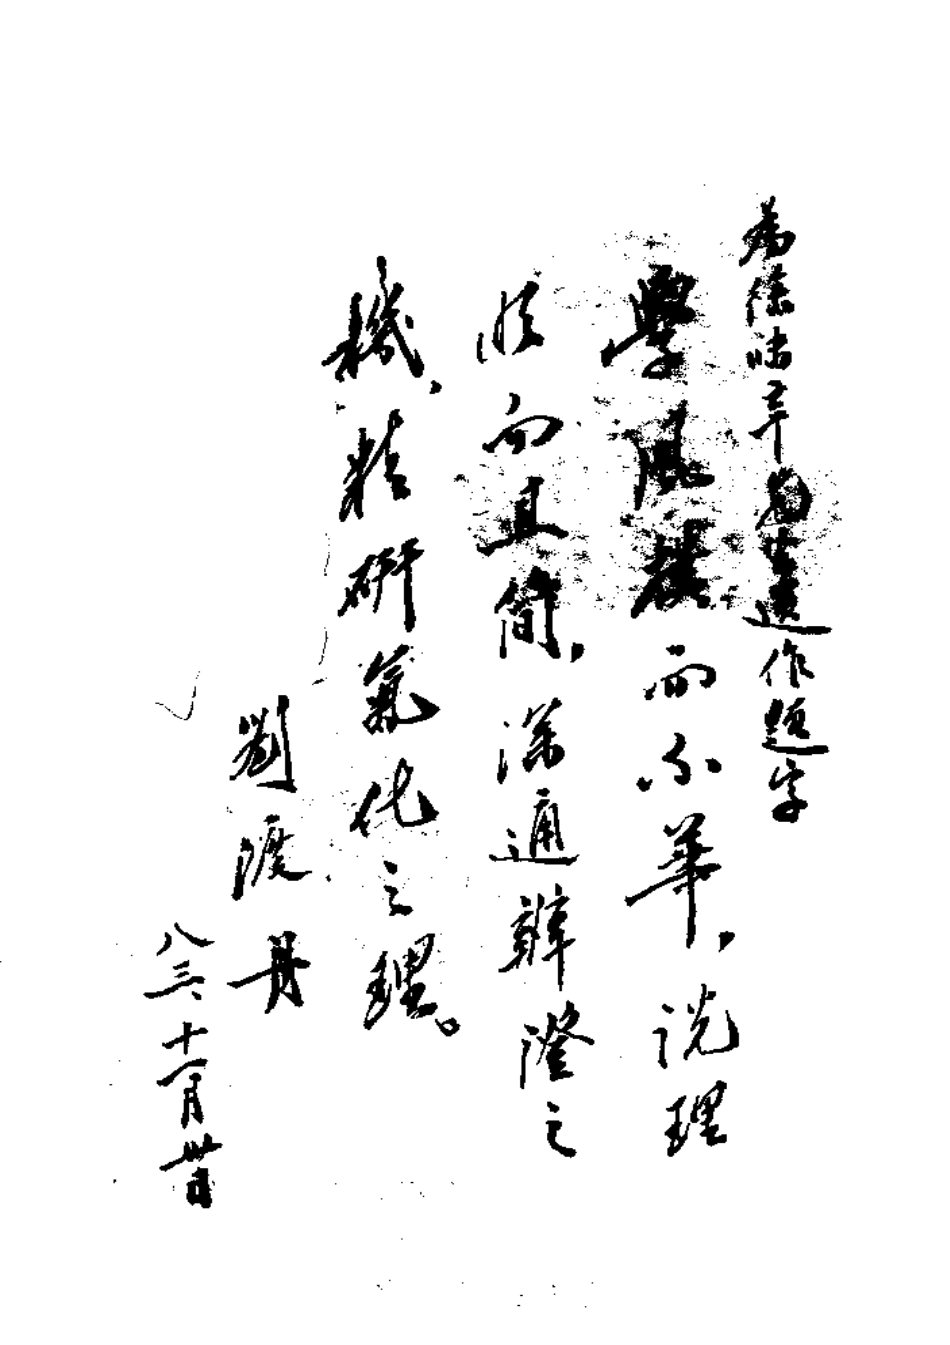 為徐辛先生遺作題字
學風樸而不華，說理
而且簡，深通辨證之
機，精研氣化之理。
劉渡舟
八三、十一月日